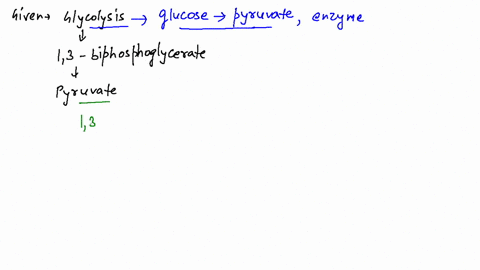 Given→ Glycolysis → glucose → pyruvate, enzyme
↓
1,3-biphosphoglycerate
↓
Pyruvate
1,3